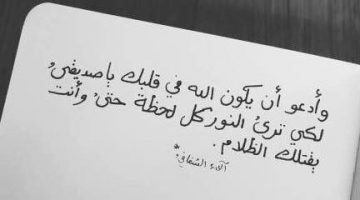 وأدعو أن يكون الله في قلبك ياصديقيُ
لكي ترىُ النور كل لحظة حتىُ وأنت
يفتلك الظلام .
آلاء الشفافي *